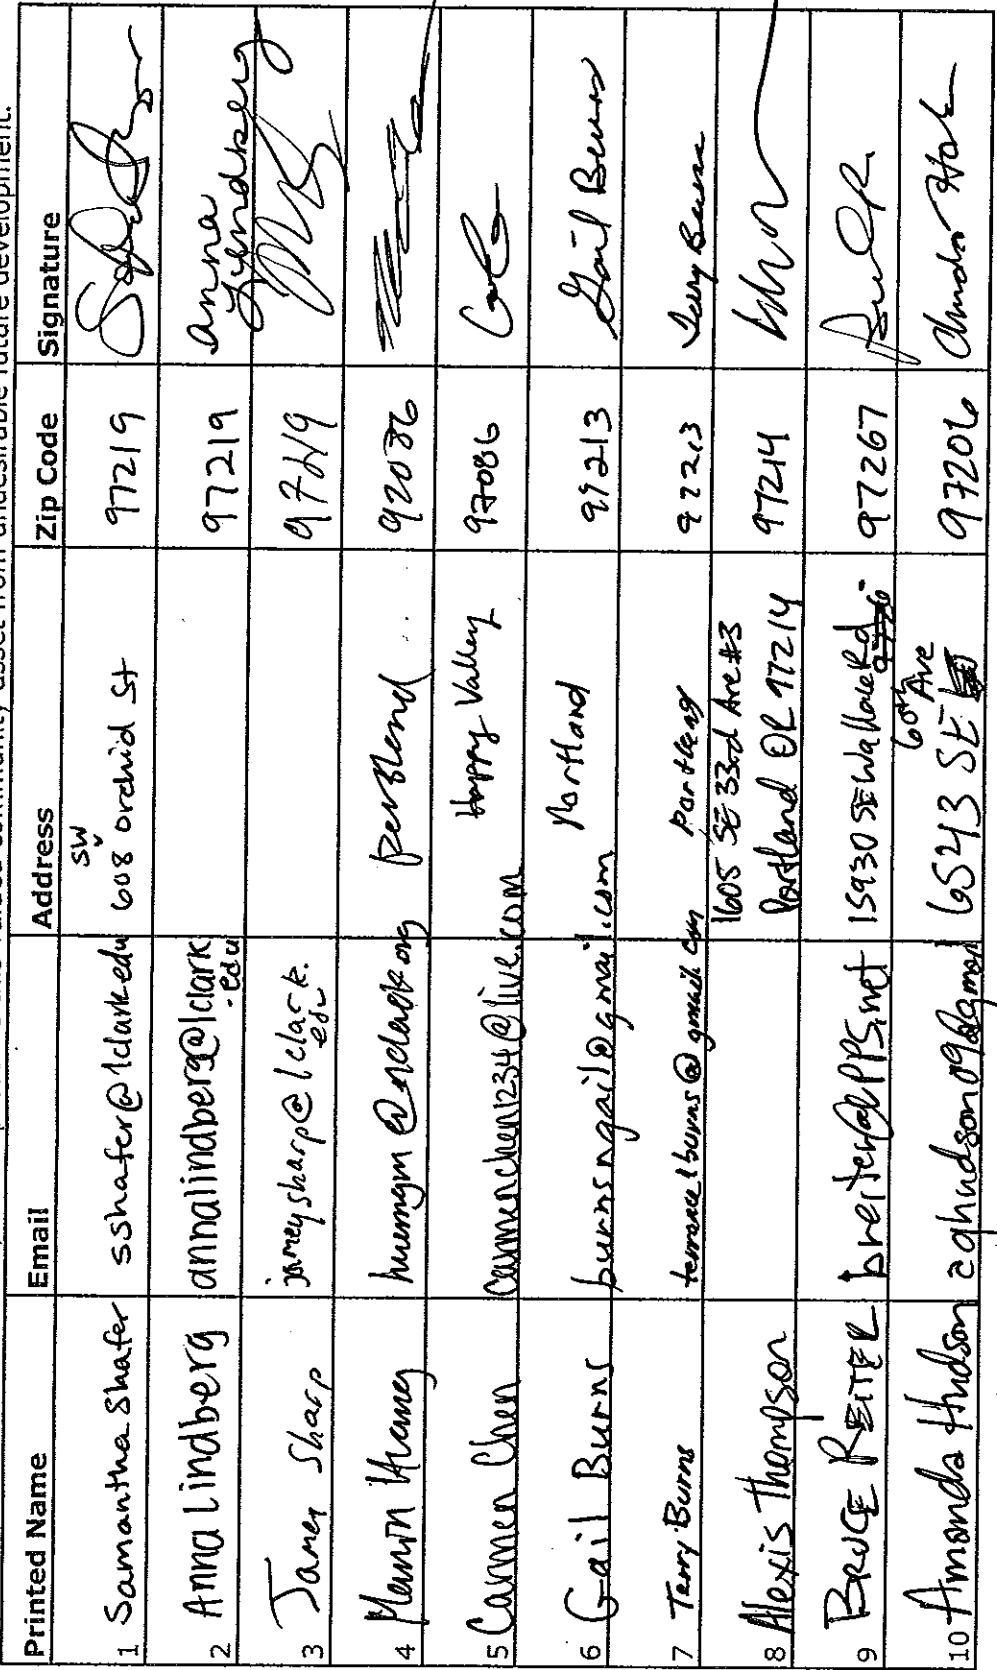 asset from undesirable future development.
Printed Name Email Address Zip Code Signature
1 Samantha Shafer sshafer@lclark.edu 608 SW orchid St 97219
2 Anna Lindberg annalindberg@lclark.edu 97219 Anna Lindberg
3 Jamey Sharp jameysharp@lclark.edu 97219
4 92086
5 Carmen Chen carmenchen1234@live.com Happy Valley 97086
6 Gail Burns burnsngail@gmail.com Portland 97213 Gail Burns
7 Terry Burns terrance1burns@gmail.com Portland 97213 Terry Burns
8 Alexis Thompson 1605 SE 33rd Ave #3
Portland OR 97214 97214
9 BRUCE REITER breiter@PPS.net 15930 SE Wallace Rd 97267
10 Amanda Hudson 6543 SE 60th Ave 97206